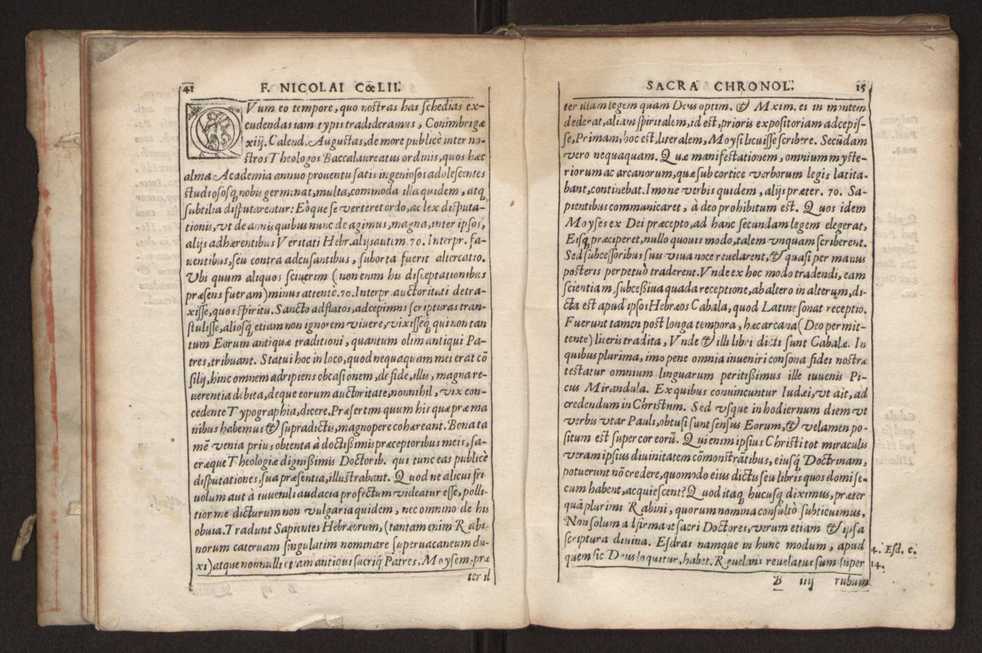 41 F. NICOLAI CœLII.
QVum eo tempore, quo nostras has schedias ex-
cudendas iam typis tradideramus, Conimbrigæ
xiij. Calend. Augustas, de more publicè inter no-
stros Theologos Baccalaureatus ordinis, quos hæc
alma Academia annuo prouentu satis ingeniosos adolescentes
studiososq; nobis germinat, multa, commoda illa quidem, atq;
subtilia disputarentur: Eòque se verteret ordo, ac lex disputa-
tionis, vt de annis quibus nunc de agimus, magna, inter ipsos,
alijs adhærentibus Veritati Hebr. alijs autem. 70. Interpr. fa-
uentibus, seu contra adcusantibus, suborta fuerit altercatio.
Vbi quum aliquos sciuerim (non enim his disceptationibus
præsens fueram) minus attentè. 70. Interpr auctoritati detra-
xisse, quos spiritu. Sancto adflatos, adcepimus scripturas tran-
stulisse, aliosq; etiam non ignorem viuere, vixisseq; qui non tan
tum Eorum antiquæ traditioni, quantum olim antiqui Pa-
tres, tribuant. Statui hoc in loco, quod nequaquam mei erat cō
silij, hinc omnem adripiens obcasionem, de fide, illis, magna re-
uerentia debita, deque eorum auctoritate, nonnihil, vix con-
cedente Typographia, dicere. Præsertim quum his quæ præ ma
nibus habemus & supradictis, magnopere cohæreant. Bona ta
mē venia prius obtenta à doctissimis præceptoribus meis, sa-
cræque Theologiæ dignissimis Doctorib. qui tunc eas publicè
disputationes, sua præsentia, illustrabant. Quod ne alicui fri
uolum aut à iuuenili audacia profectum videatur esse, polli-
tior me dicturum non vulgaria quidem, nec omnino de his
obuia. Tradunt Sapientes Hebræorum, (tantam enim Rabi-
norum cateruam singulatim nominare superuacaneum du-
xi) atque nonnulli etiam antiqui sacriq; Patres. Moysem. præ
ter il
SACRA CHRONOL. 15
ter illam legem quam Deus optim. & Maxim. ei in montem
dederat, aliam spiritalem, id est, prioris expositoriam adcepis-
se, Primam, hoc est, literalem, Moysi licuisse scribere. Secūdam
vero nequaquam. Quæ manifestationem, omnium myste-
riorum ac arcanorum, quæ sub cortice verborum legis latita-
bant, continebat. Imo ne verbis quidem, alijs præter. 70. Sa-
pientibus communicaret, à deo prohibitum est. Quos idem
Moyses ex Dei præcepto, ad hanc secundam legem elegerat,
Eisq; præciperet, nullo quouis modo, talem vnquam scriberent.
Sed subcessoribus suis viua uoce reuelarent, & quasi per manus
posteris perpetuò traderent. Vnde ex hoc modo tradendi, eam
scientiam, subcessiua quadã receptione, ab altero in alterum, di-
cta est apud ipsos Hebræos Cabala, quod Latine sonat receptio.
Fuerunt tamen post longa tempora, hæc arcana (Deo permit-
tente) literis tradita, Vnde & illi libri dicti sunt Cabalæ. In
quibus plurima, imo pene omnia inueniri consona fidei nostræ
testatur omnium linguarum peritissimus ille iuuenis Pi-
cus Mirandula. Ex quibus conuincuntur Iudæi, vt ait, ad
credendum in Christum. Sed vsque in hodiernum diem vt
verbis vtar Pauli, obtusi sunt sensus Eorum, & velamen po-
situm est super cor eorū. Qui enim ipsius Christi tot miraculis
veram ipsius diuinitatem cōmonstrātibus, eiusq; Doctrinam,
potuerunt nō credere, quomodo eius dictis seu libris quos domi se-
cum habent, acquiescent? Quod itaq; hucusq; diximus, præter
quā plurimi Rabini, quorum nomina consultò subticuimus.
Non solum adfirmant sacri Doctores, verum etiam & ipsa
scriptura diuina. Esdras namque in hunc modum, apud
quem sic Deus loquitur, habet. Reuelans reuelatus sum super
4. Esd. c.
14.
B iiij rubum